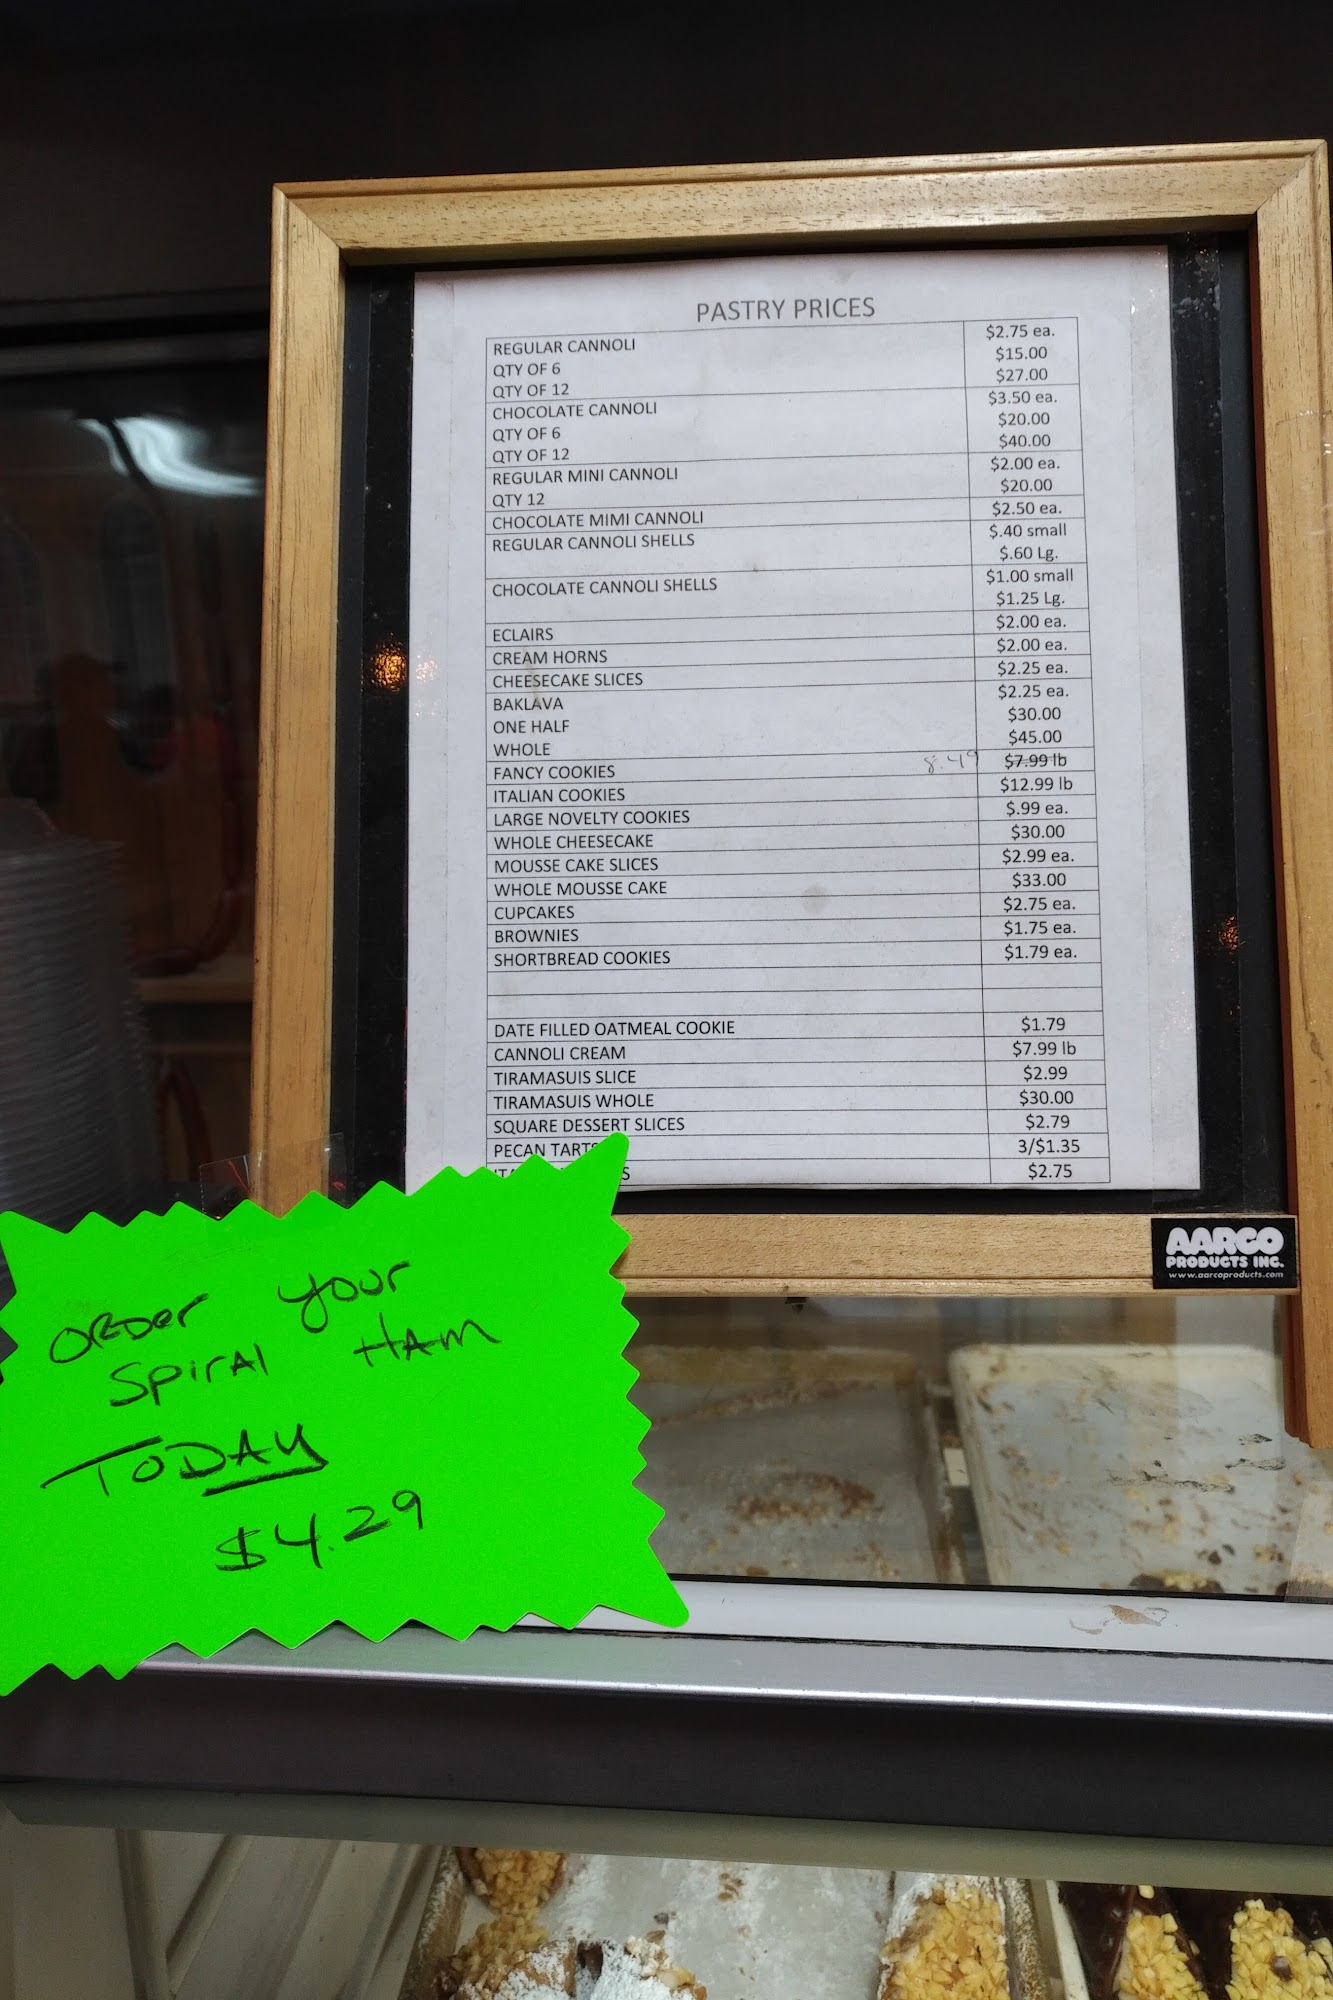 PASTRY PRICES
REGULAR CANNOLI $2.75 ea.
QTY OF 6 $15.00
QTY OF 12 $27.00
CHOCOLATE CANNOLI $3.50 ea.
QTY OF 6 $20.00
QTY OF 12 $40.00
REGULAR MINI CANNOLI $2.00 ea.
QTY 12 $20.00
CHOCOLATE MIMI CANNOLI $2.50 ea.
REGULAR CANNOLI SHELLS $.40 small
$.60 Lg.
CHOCOLATE CANNOLI SHELLS $1.00 small
$1.25 Lg.
ECLAIRS $2.00 ea.
CREAM HORNS $2.00 ea.
CHEESECAKE SLICES $2.25 ea.
BAKLAVA $2.25 ea.
ONE HALF $30.00
WHOLE $45.00
FANCY COOKIES 8.49 $7.99 lb
ITALIAN COOKIES $12.99 lb
LARGE NOVELTY COOKIES $.99 ea.
WHOLE CHEESECAKE $30.00
MOUSSE CAKE SLICES $2.99 ea.
WHOLE MOUSSE CAKE $33.00
CUPCAKES $2.75 ea.
BROWNIES $1.75 ea.
SHORTBREAD COOKIES $1.79 ea.
DATE FILLED OATMEAL COOKIE $1.79
CANNOLI CREAM $7.99 lb
TIRAMASUIS SLICE $2.99
TIRAMASUIS WHOLE $30.00
SQUARE DESSERT SLICES $2.79
PECAN TARTS 3/$1.35
$2.75
AARCO
PRODUCTS ING.
www.aarcoproducts.com
ORDer your
SPirAl HAm
TODAY
$4.29